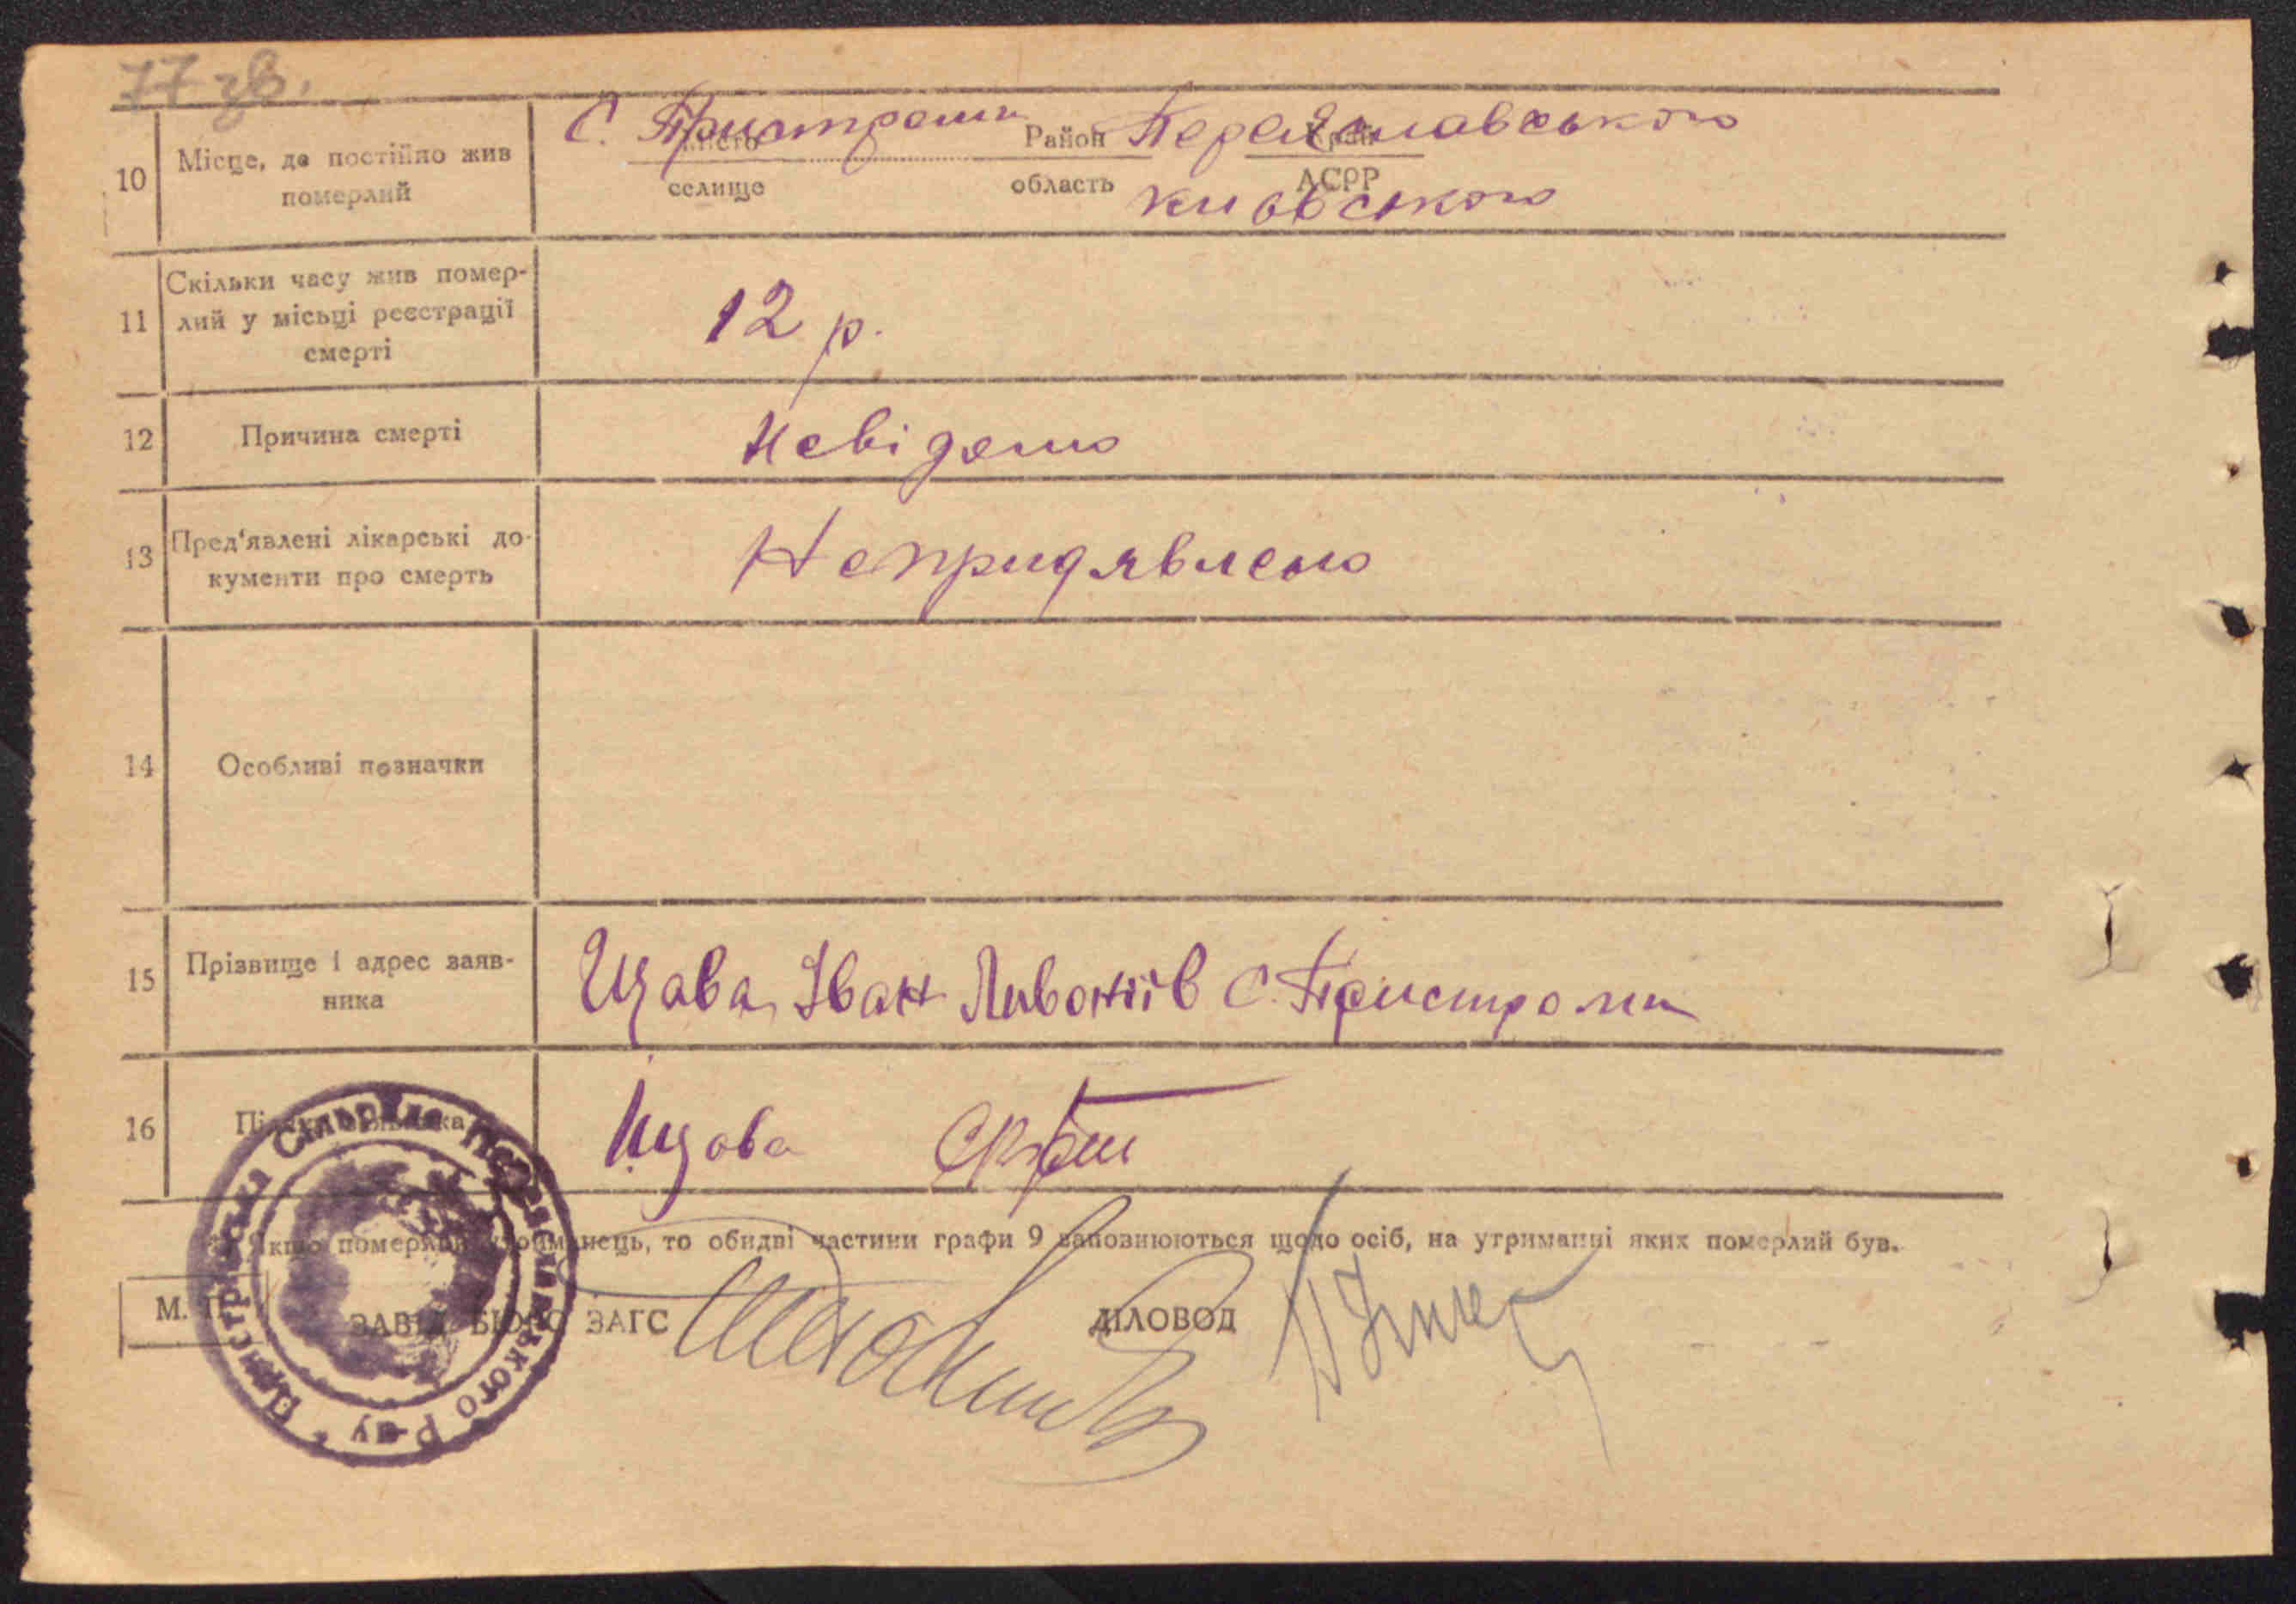 77 зв.
10 Місце, де постійно жив померлий
С. Пристроми Район Переяславського
місто край
селище область АСРР
Київського
11 Скільки часу жив помер-
лий у місьці реєстрації
смерті
12 р.
12 Причина смерті
Невідомо
13 Пред'явлені лікарські до-
кументи про смерть
Непридявлено
14 Особливі позначки
15 Прізвище і адрес заяв-
ника
Іван С. Пристроми
16 Підпис заявника
Якщо померлий утриманець, то обидві частини графи 9 заповнюються щодо осіб, на утриманні яких померлий був.
М. П.
ЗАВІД. БЮРО ЗАГС
ДІЛОВОД
Пристромська Сільрада Переяславського Р-ну